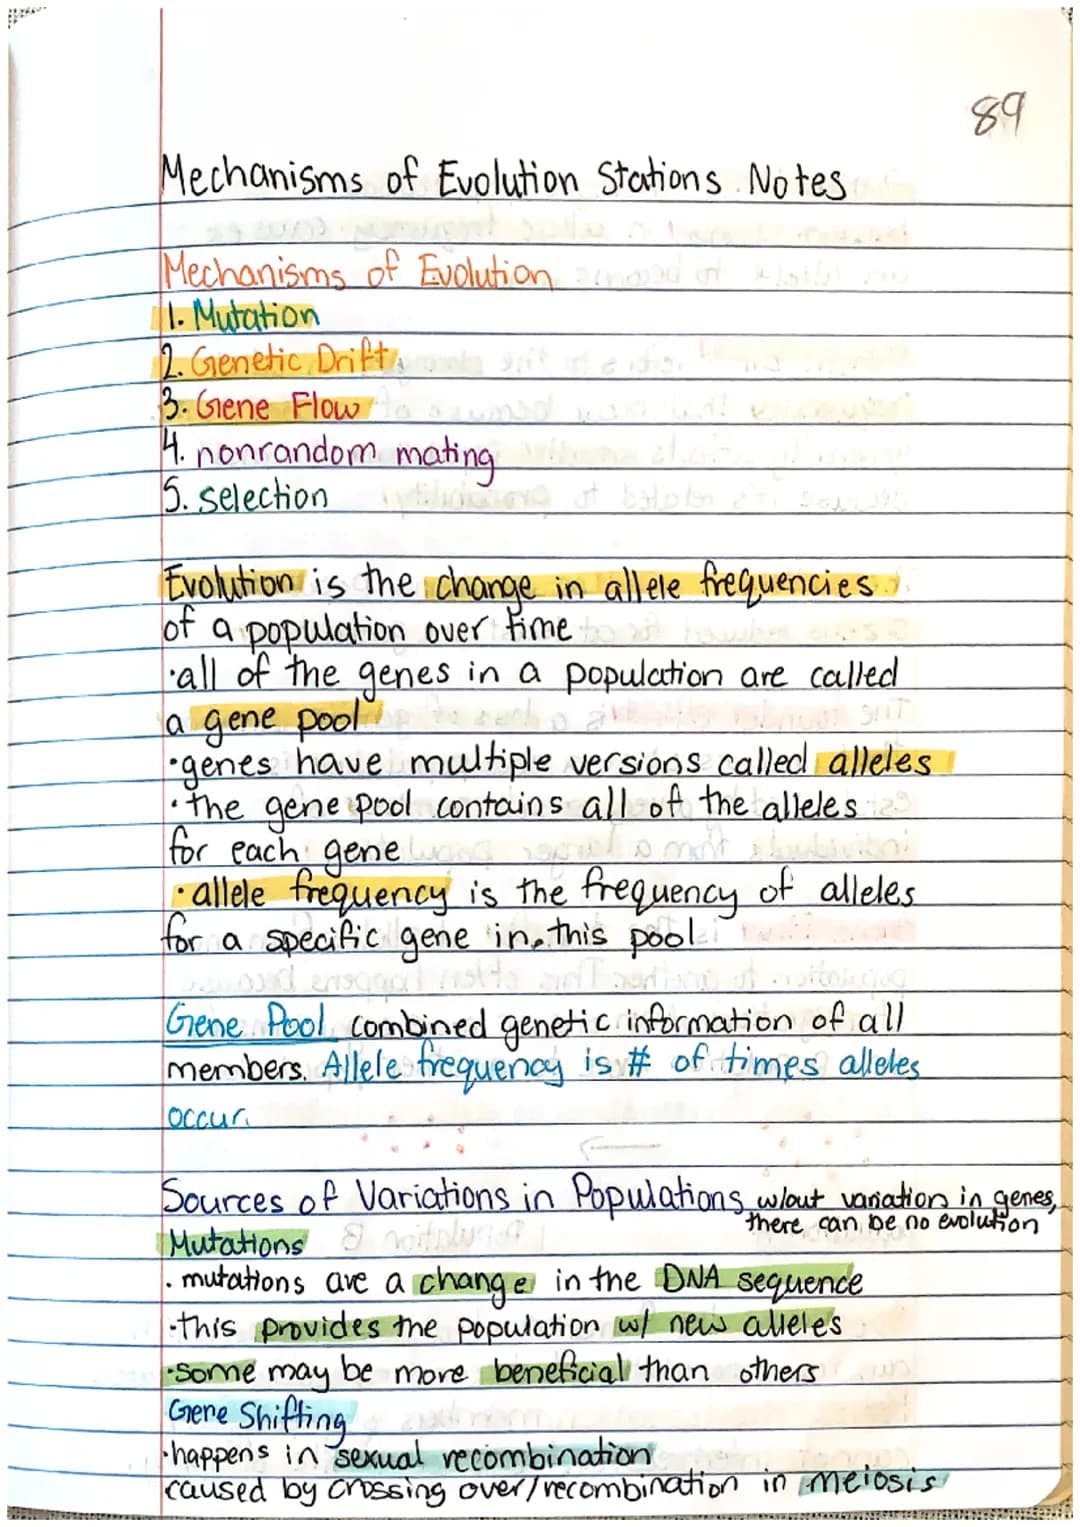 89
Mechanisms of Evolution Stations Notes
Mechanisms of Evolution
1. Mutation
2. Genetic Drift
3. Gene Flow
4. nonrandom mating
5. selection
Evolution is the change in allele frequencies
of a population over time
·all of the genes in a population are called
a gene pool
·genes have multiple versions called alleles
·the gene pool contains all of the alleles
for each gene
·allele frequency is the frequency of alleles
for a specific gene in this pool
Gene Pool combined genetic information of all
members. Allele frequency is # of times alleles
occur.
Sources of Variations in Populations w/out variation in genes,
there can be no evolution
Mutations
· mutations are a change in the DNA sequence
·this provides the population w/ new alleles
·some may be more beneficial than others
Gene Shifting
·happens in sexual recombination
caused by crossing over/recombination in meiosis